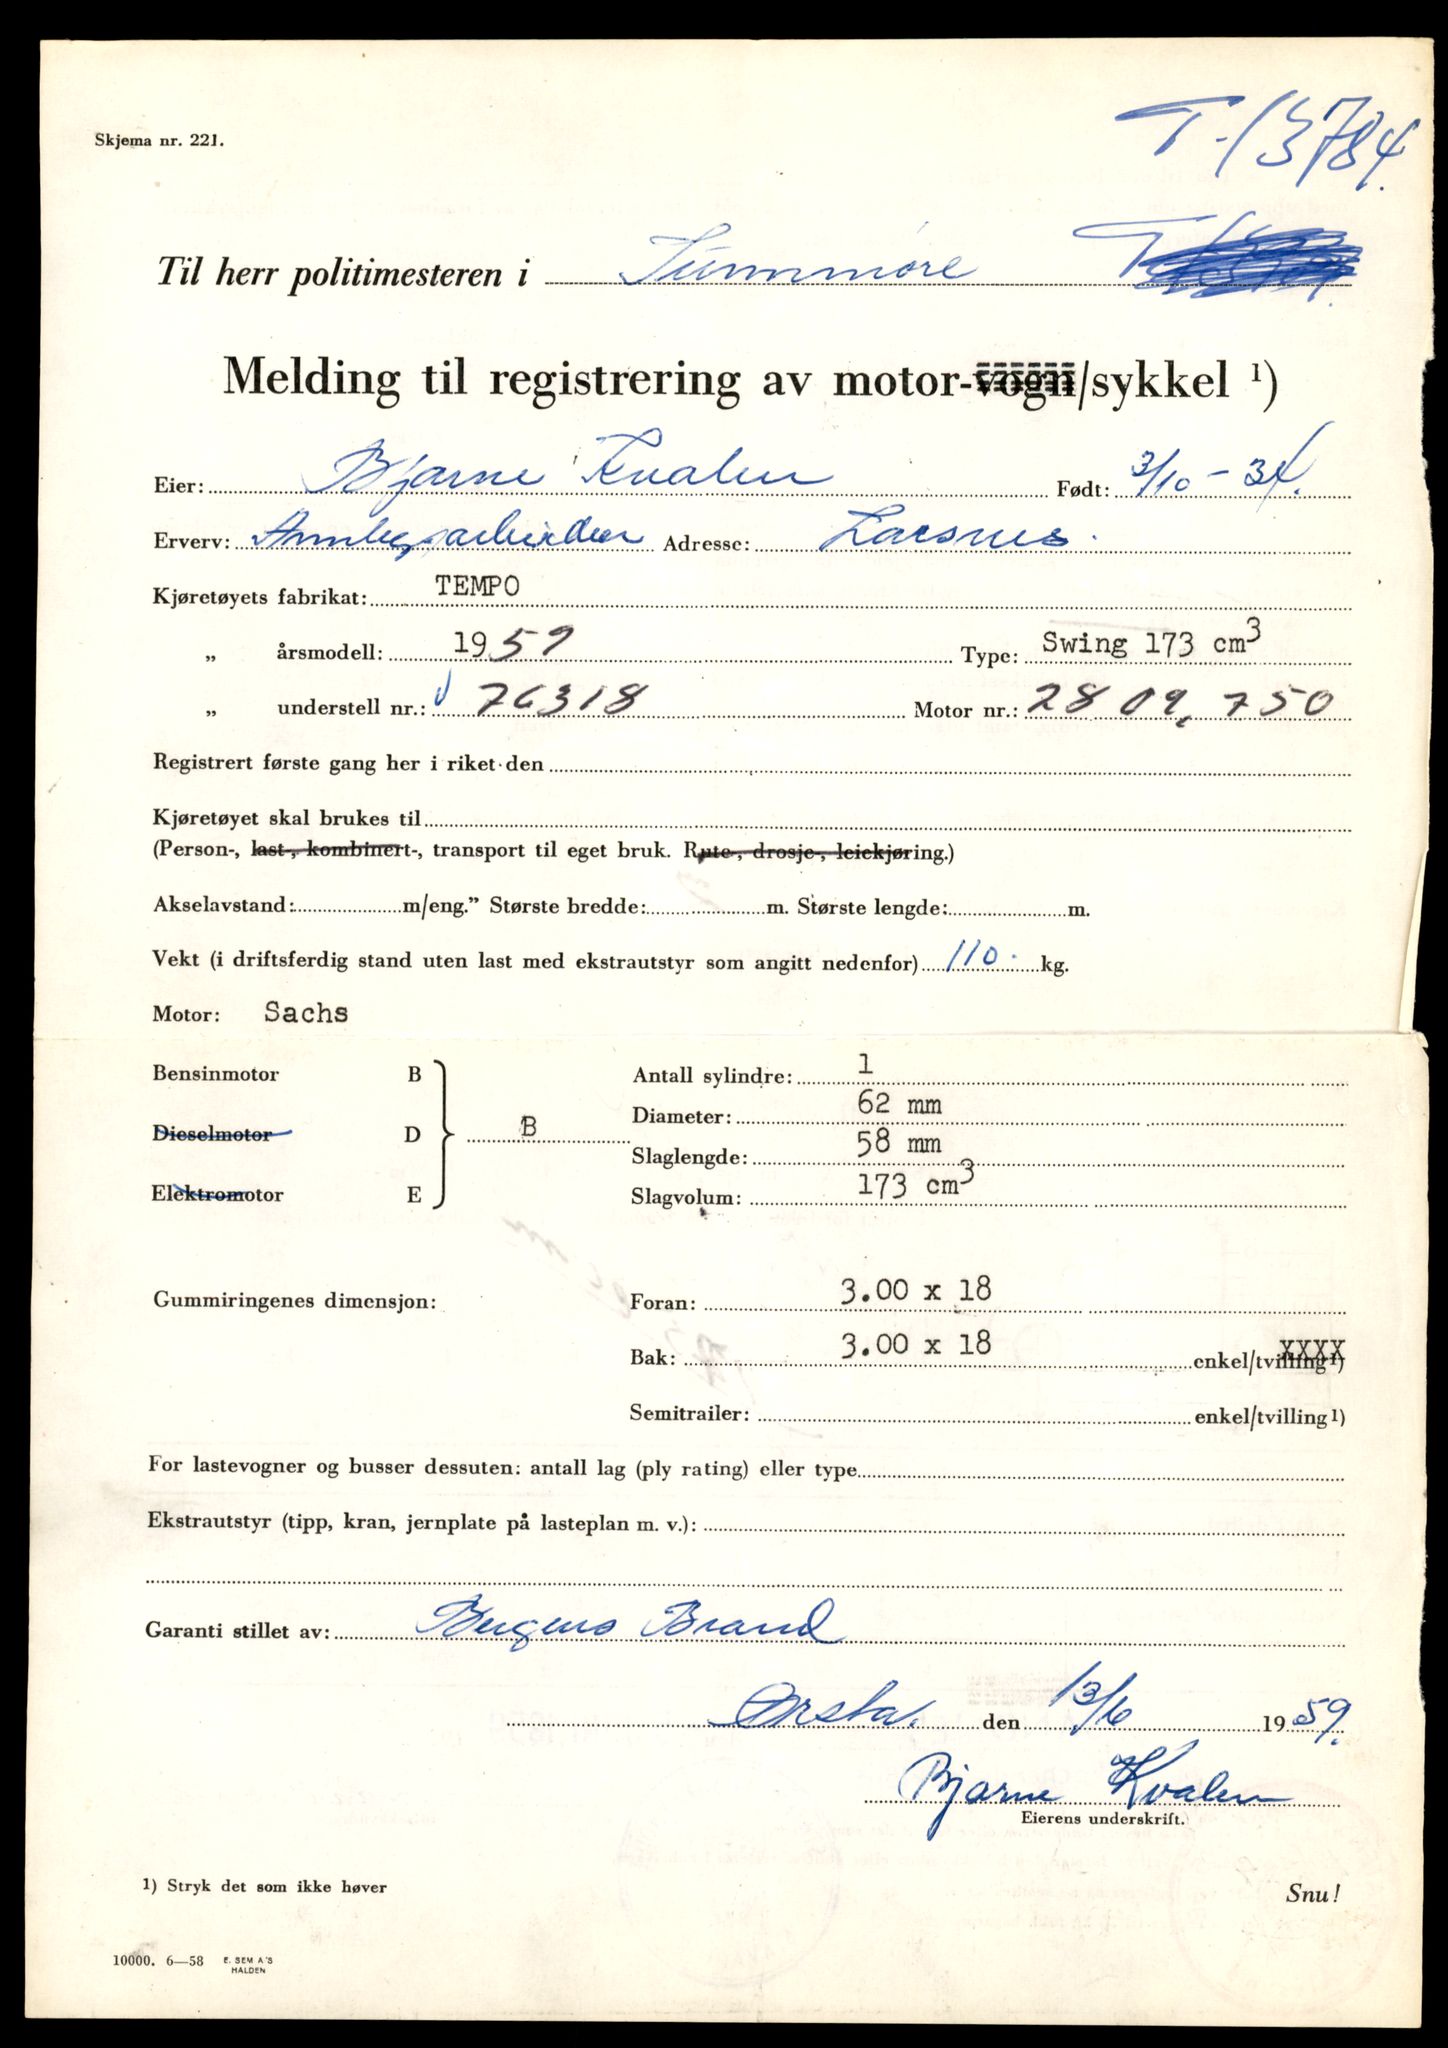 T-13784.
Skjema nr. 221.
Til herr politimesteren i Sunnmøre
Melding til registrering av motor-vogn/sykkel ¹)
Eier: Bjarne Kvalen Født: 3/10-34.
Erverv: Anleggsarbeider Adresse: Larsnes.
Kjøretøyets fabrikat: TEMPO
„ årsmodell: 1959 Type: Swing 173 cm³
„ understell nr.: 76318 Motor nr.: 2809.750
Registrert første gang her i riket den
Kjøretøyet skal brukes til
(Person-, last-, kombinert-, transport til eget bruk. Rute-, drosje-, leiekjøring.)
Akselavstand: m/eng.” Største bredde: m. Største lengde: m.
Vekt (i driftsferdig stand uten last med ekstrautstyr som angitt nedenfor) 110. kg.
Motor: Sachs
Bensinmotor B Antall sylindre: 1
Diameter: 62 mm
Dieselmotor D B
Slaglengde: 58 mm
Elektromotor E Slagvolum: 173 cm³
Gummiringenes dimensjon: Foran: 3.00 x 18
Bak: 3.00 x 18 enkel/tvilling¹) XXXX
Semitrailer: enkel/tvilling¹)
For lastevogner og busser dessuten: antall lag (ply rating) eller type
Ekstrautstyr (tipp, kran, jernplate på lasteplan m. v.):
Garanti stillet av: Bergens Brand
Ørsta. den 13/6 1959.
Bjarne Kvalen
Eierens underskrift.
1) Stryk det som ikke høver
Snu!
10000. 6—58 E. SEM A'S
HALDEN